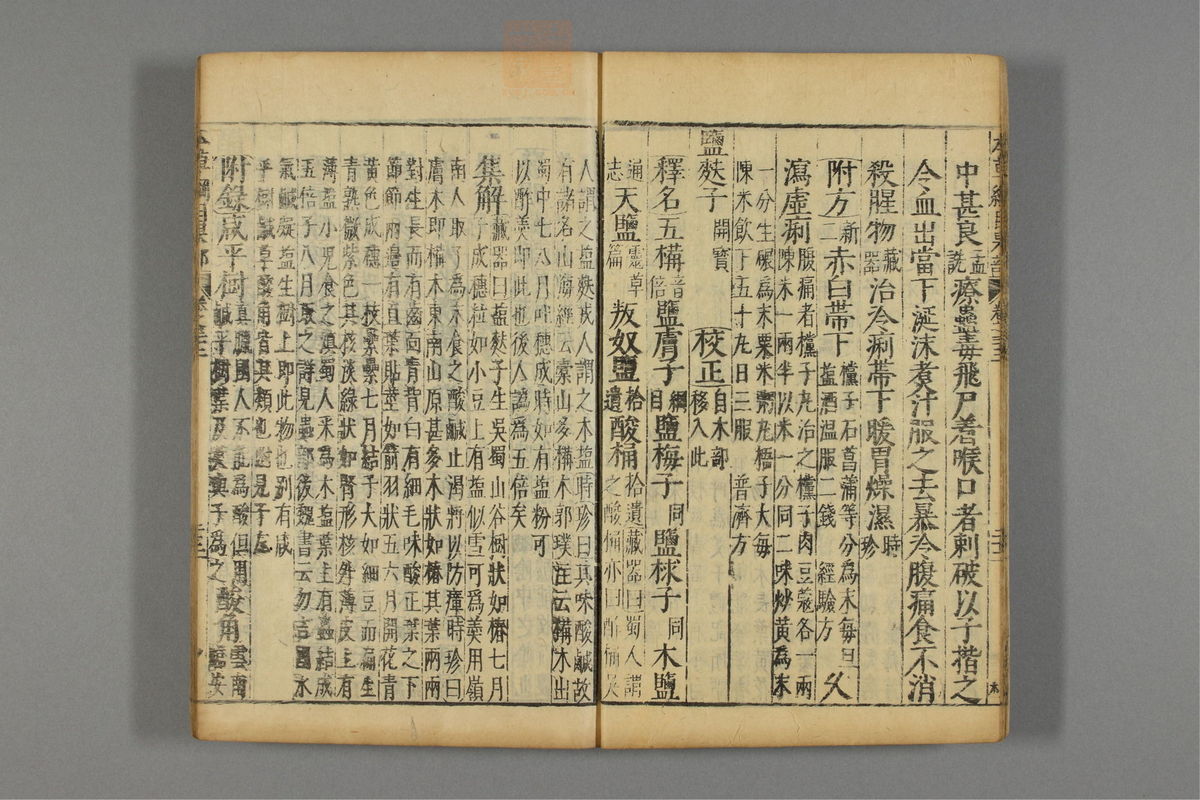 中甚良孟詵療蠱毒飛尸着喉口者剌破以子揩之
令血出當下涎沫煮汁服之去暴冷腹痛食不消
殺腥物藏器治冷痢帶下暖胃燥濕時珍
附方新二赤白帶下欓子石菖蒲等分為末每旦盐酒温服二錢經驗方久
瀉虛痢腹痛者欓子丸治之欓子肉豆蔻各一兩陳米一兩半以米一分同二味炒黃為末
一分生碾為末粟米粥丸梧子大每陳米飲下五十丸日三服普濟方
鹽麩子開寶校正自木部移入此
釋名五㯏音倍鹽膚子綱目鹽梅子同鹽梂子同木鹽
通志天鹽靈草篇叛奴鹽拾遺酸桶拾遺藏器曰蜀人謂之酸桶亦曰酢桶吳
人謂之盐麩戎人謂之木盐時珍曰其味酸鹹故
有諸名山海經云橐山多㯏木郭璞注云㯏木出
蜀中七八月吐穗成時如有盐粉可
以酢羹即此也後人訛為五倍矣
集解藏器曰盐麩子生吳蜀山谷樹狀如椿七月
子成穗粒如小豆上有盐似雪可為羹用嶺
南人取子為末食之酸鹹止渴將以防瘴時珍曰
膚木即㯏木東南山原甚多木狀如椿其葉兩兩
對生長而有齒面青背白有細毛味酸正葉之下
節節兩邊有直葉貼莖如箭羽狀五六月開花青
黃色成穗一枝纍纍七月結子大如細豆而扁生
青熟微紫色其核淡綠狀如腎形核外薄皮上有
薄盐小兒食之滇蜀人采為木盐葉上有蟲結成
五倍子八月取之詳見蟲部後魏書云勿吉國水
氣鹹凝盐生樹上即此物也別有鹹
平樹鹹草酸角皆其類也附見于左
附錄鹹平樹真臘國人不能為酸但用鹹平樹葉及莢與子為之酸角雲南